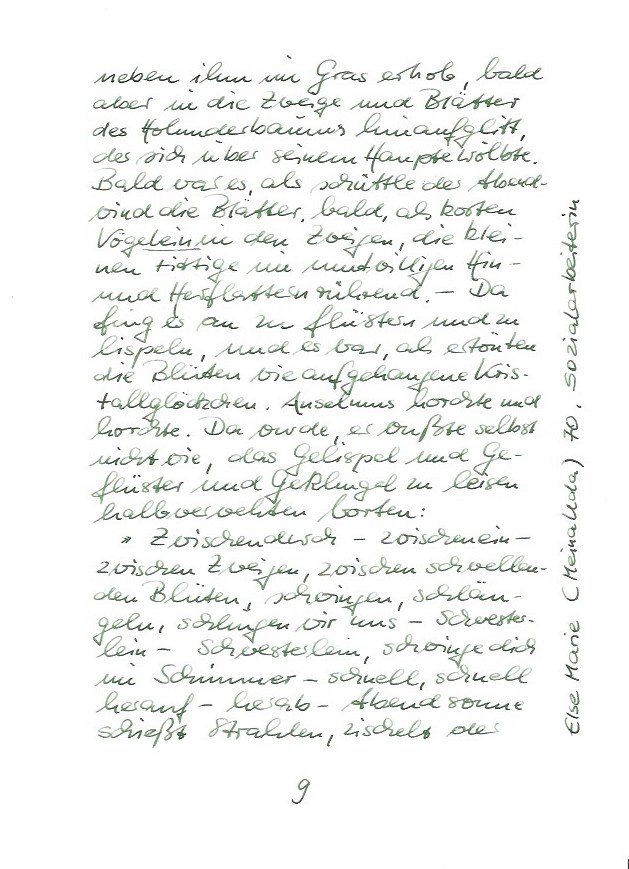 neben ihm im Gras erhob, bald
aber in die Zweige und Blätter
des Holunderbaums hinaufglitt,
der sich über seinem Haupte wölbte.
Bald war es, als schüttle der Abend-
wind die Blätter, bald, als kosten
Vögelein in den Zweigen, die klei-
nen Fittige im mutwilligen Hin-
und Herflattern rührend. – Da
fing es an zu flüstern und zu
lispeln, und es war, als ertönten
die Blüten wie aufgehangene Kris-
tallglöckchen. Anselmus horchte und
horchte. Da wurde, er wußte selbst
nicht wie, das Gelispel und Ge-
flüster und Geklingel zu leisen
halbverwehten Worten:
" Zwischendurch – zwischenein –
zwischen Zweigen, zwischen schwellen-
den Blüten, schwingen, schlän-
geln, schlingen wir uns – Schwester-
lein – Schwesterlein, schwinge dich
im Schimmer – schnell, schnell
herauf – herab – Abendsonne
schießt Strahlen, zischelt der
9
Else Marie (Meinalda) 70, Sozialarbeiterin